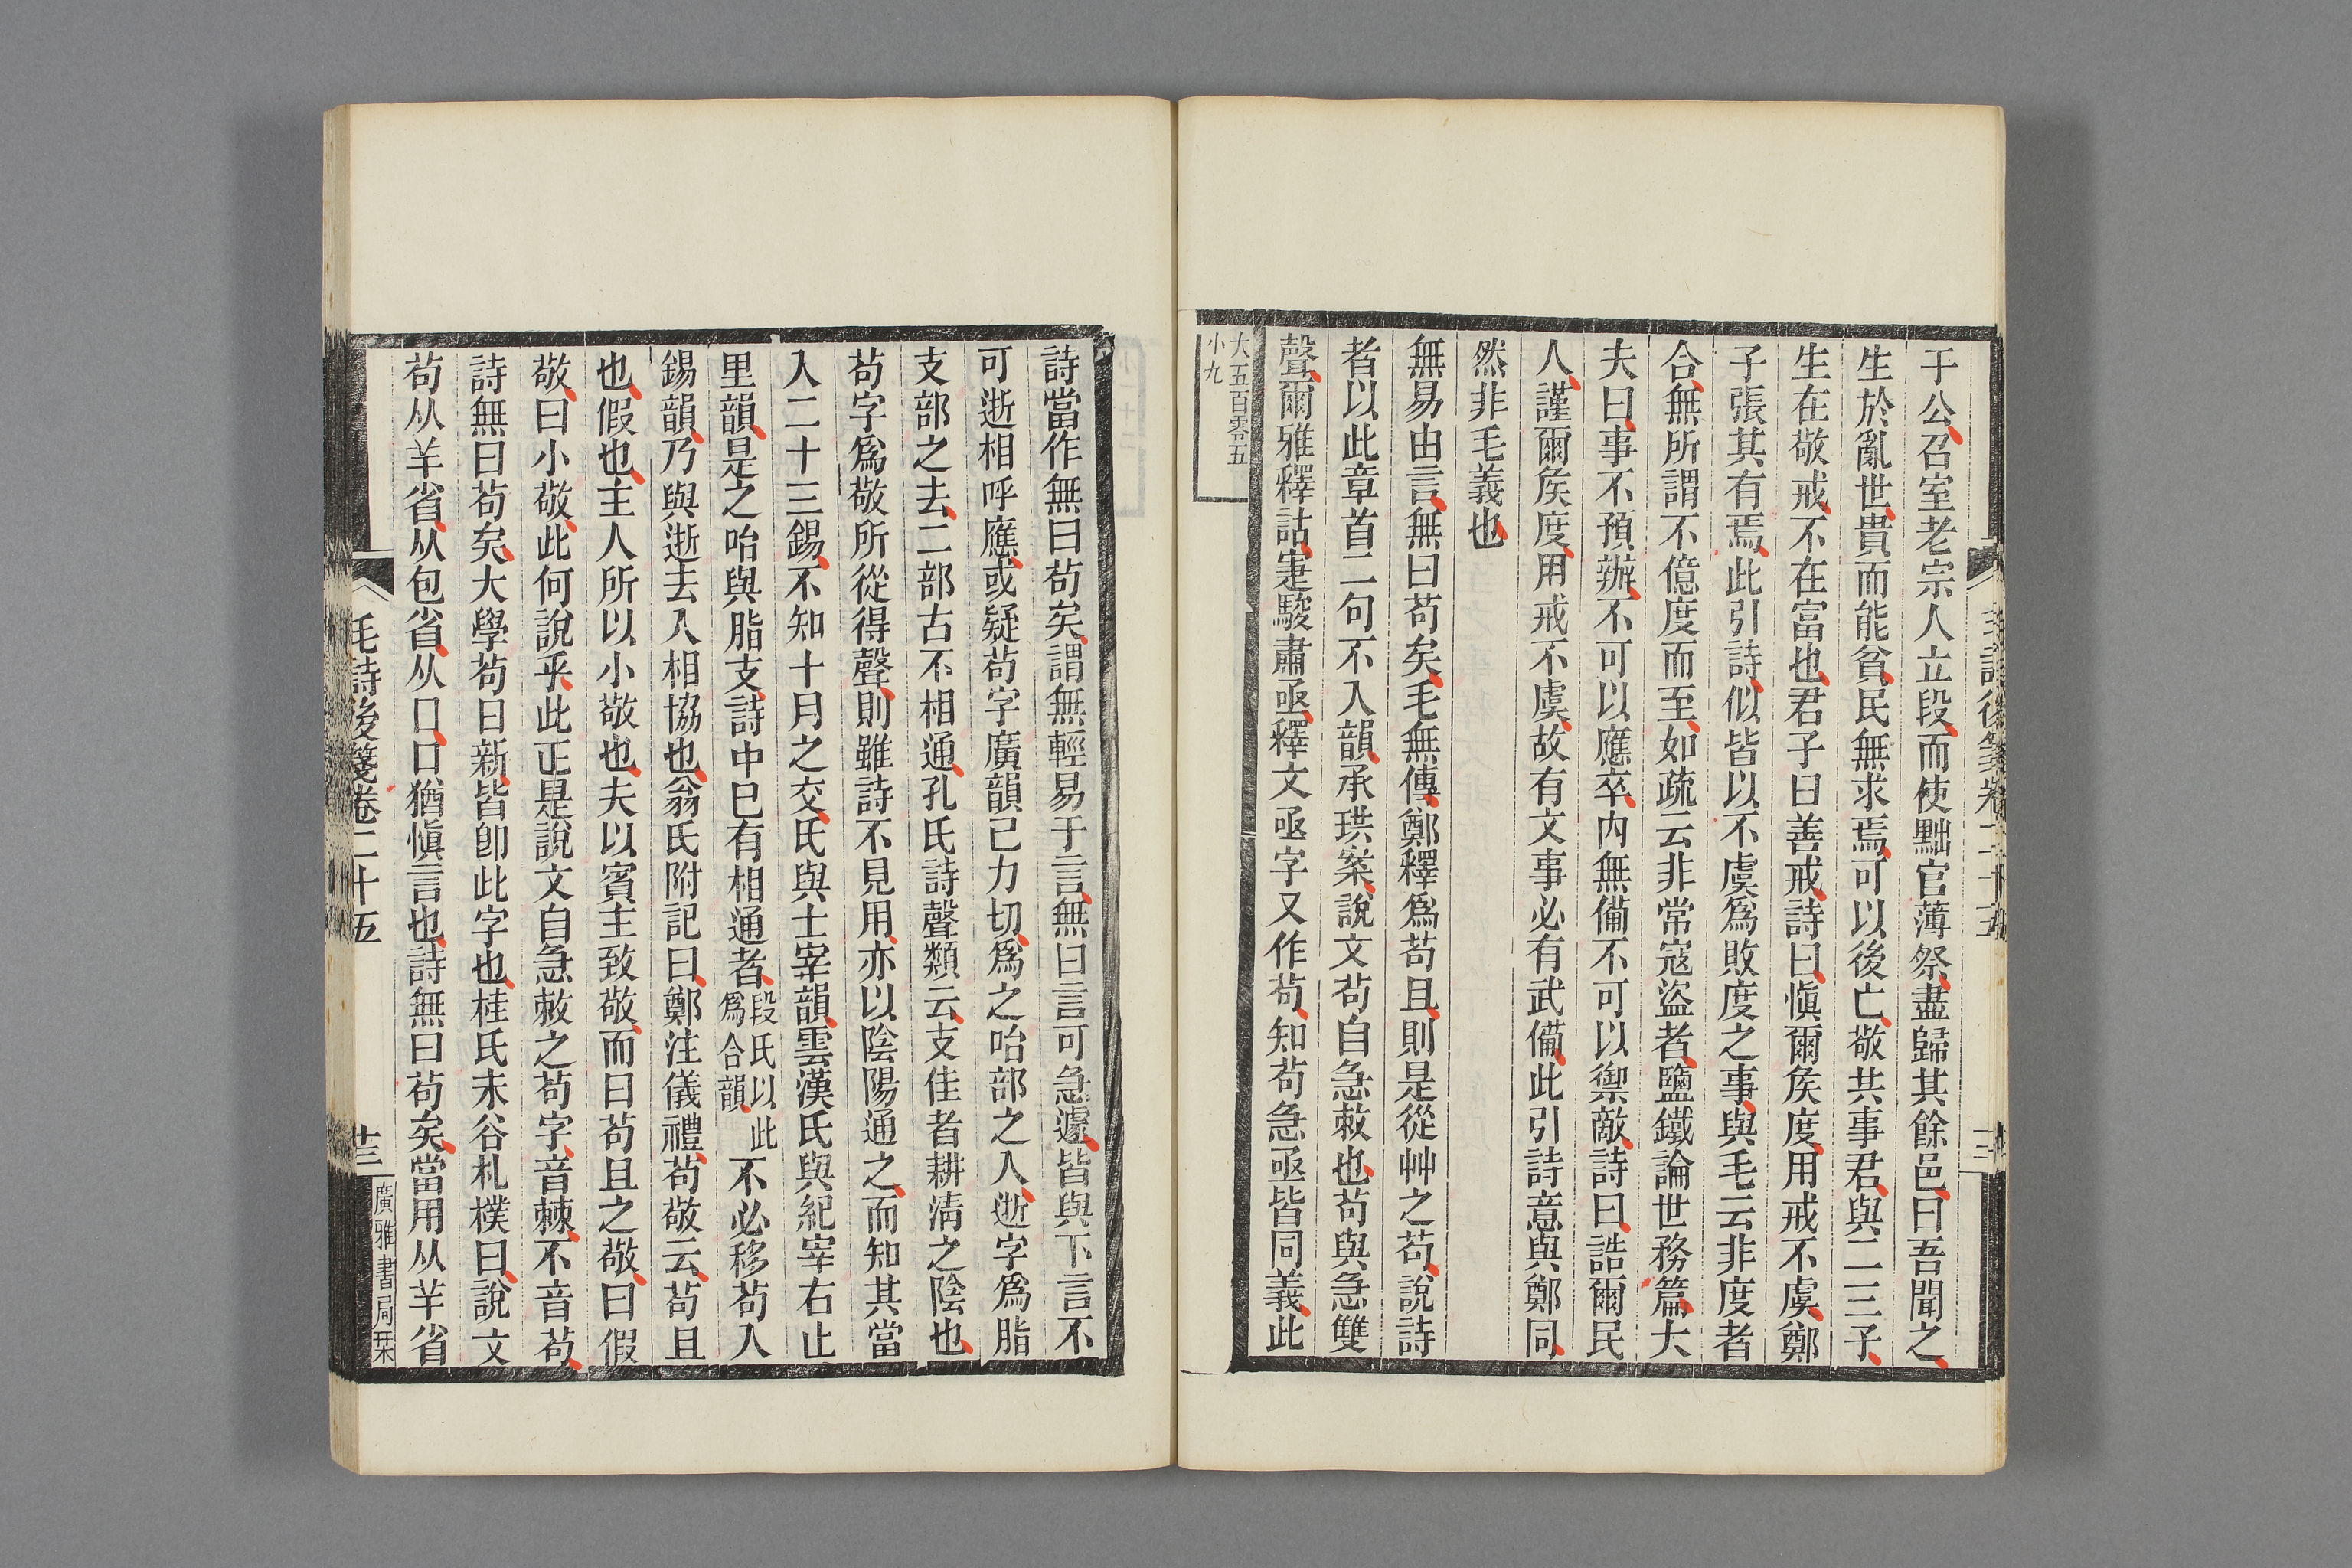 于公召室老宗人立段而使黜官薄祭盡歸其餘邑曰吾聞之
生於亂世貴而能貧民無求焉可以後亡敬共事君與二三子
生在敬戒不在富也君子曰善戒詩曰愼爾矦度用戒不虞鄭
子張其有焉此引詩似皆以不虞爲敗度之事與毛云非度者
合無所謂不億度而至如疏云非常寇盜者鹽鐵論世務篇大
夫曰事不預辦不可以應卒內無備不可以禦敵詩曰誥爾民
人謹爾矦度用戒不虞故有文事必有武備此引詩意與鄭同
然非毛義也
無易由言無曰苟矣毛無傳鄭釋爲苟且則是從艸之苟說詩
者以此章首二句不入韻承珙案說文茍自急敕也茍與急雙
聲爾雅釋詁寁駿肅亟釋文亟字又作茍知茍急亟皆同義此
大五百零五
小九
詩當作無曰茍矣謂無輕易于言無曰言可急遽皆與下言不
可逝相呼應或疑茍字廣韻己力切爲之咍部之入逝字爲脂
支部之去二部古不相通孔氏詩聲類云支佳者耕淸之陰也
茍字爲敬所從得聲則雖詩不見用亦以陰陽通之而知其當
入二十三錫不知十月之交氏與士宰韻雲漢氏與紀宰右止
里韻是之咍與脂支詩中已有相通者段氏以此爲合韻不必移茍入
錫韻乃與逝去入相協也翁氏附記曰鄭注儀禮茍敬云茍且
也假也主人所以小敬也夫以賓主致敬而曰苟且之敬曰假
敬曰小敬此何說乎此正是說文自急敕之茍字音棘不音苟
詩無曰茍矣大學茍日新皆卽此字也桂氏未谷札樸曰說文
茍从羊省从包省从口口猶愼言也詩無曰茍矣當用从羊省
毛詩後箋卷二十五
廣雅書局栞